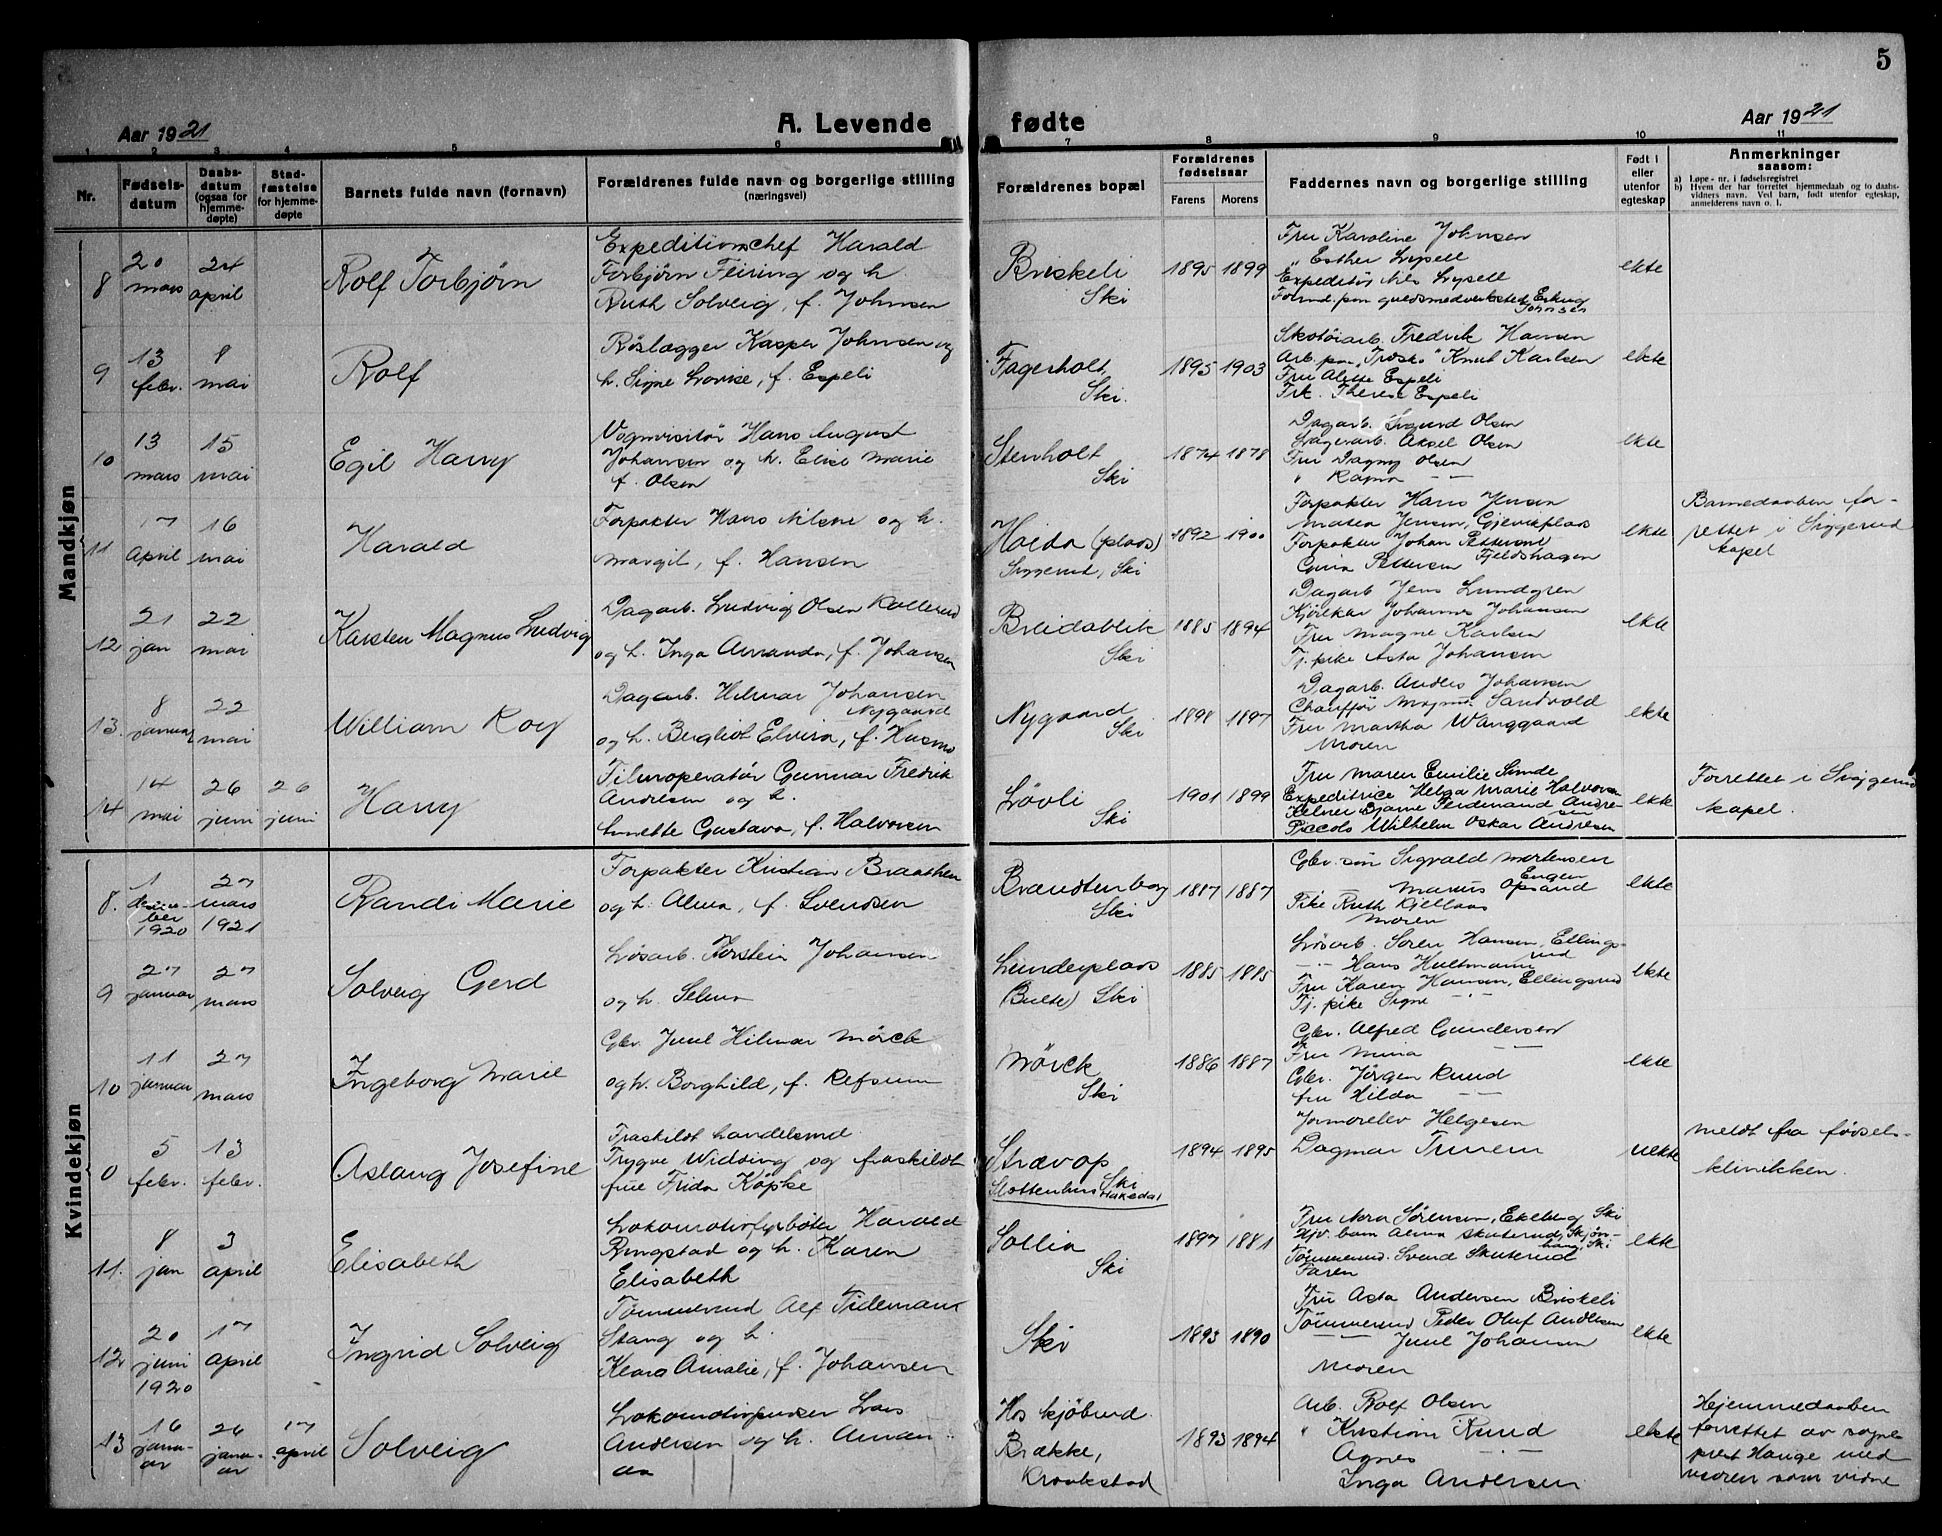 5
Aar 1921
A. Levende fødte
Aar 1921
1 2 3 4 5 6 7 8 9 10 11
Nr.
Fødsels-
datum
Daabs-
datum
(ogsaa for
hjemme-
døpte)
Stad-
fæstelse
for hjemme-
døpte
Barnets fulde navn (fornavn)
Forældrenes fulde navn og borgerlige stilling
(næringsvei)
Forældrenes bopæl
Forældrenes
fødselsaar
Farens Morens
Faddernes navn og borgerlige stilling
Født i
eller
utenfor
egteskap
Anmerkninger
saasom:
a) Løpe-nr. i fødselsregistret
b) Hvem der har forrettet hjemmedaab og to daabs-
vidners navn. Ved barn, født utenfor egteskap,
anmelderens navn o. l.
Mandkjøn
8
20
mars
24
april
Rolf Torbjørn
Expeditionschef Harald
Torbjørn Feiring og h.
Ruth Solveig, f. Johnsen
Briskeli
Ski
1895 1899
Fru Karoline Johnsen
" Esther Lysell
Expeditør Nils Lysell
Formd. paa guldsmedverksted Erling
Johnsen
ekte
9
13
febr.
8
mai
Rolf
Rørlægger Kasper Johnsen og
h. Signe Lovise, f. Espeli
Fagerholt,
Ski.
1895 1903
Skotøiarb. Fredrik Hansen
Arb. paa "Træsko" Knut Karlsen
Fru Alette Espeli
Frk. Therese Espeli
ekte
10
13
mars
15
mai
Egil Harry
Vognvisitør Hans August
Johansen og h. Elise Marie
f. Olsen
Stenholt
Ski
1874 1878
Dagarb. Sigurd Olsen
Lagerarb. Aksel Olsen
Fru Dagny Olsen
" Ragna - -
ekte
11
17
april
16
mai
Harald
Forpakter Hans Nilsen og h.
Margit, f. Hansen
Holda (plads)
Siggerud, Ski
1892 1900
Forpakter Hans Jensen
Matea Jensen, Gjevikplads
Forpakter Johan Pettersen
Fjeldshagen
Pettersen
ekte
Barnedaaben for-
rettet i Siggerud
kapel
12
21
jan
22
mai
Karsten Magnus Ludvig
Dagarb. Ludvig Olsen Kollerud
og h. Inga Amanda, f. Johansen
Breidablik
Ski
1885 1894
Dagarb. Jens Lundgren
Kjørekar Johannes Johansen
Fru Magne Karlsen
Tj. pike Asta Johansen
ekte
13.
8
januar
22
mai
William Roy
Dagarb. Hilmar Johansen
Nygaard
og h. Bergliot Elvira, f. Husmo
Nygaard
Ski
1898 1897
Dagarb. Anders Johansen
Chauffør Magnus Sandvold
Fru Martha Wanggaard
Moren
ekte
14
14
mai
26
juni
26
juni
Harry
Filmoperatør Gunnar Fredrik
Andresen og h.
Lunette Gustava, f. Halvorsen
Løvli
Ski
1901 1899
Fru Maren Emilie Simde
Expeditrice Helga Marie Halvorsen
Kelner Bjarne Ferdinand Andre-
sen
Piccolo Wilhelm Oskar Andresen
ekte
Forrettet i Siggerud
kapel.
Kvindekjøn
8.
1
desem-
ber
1920
27
mars
1921
Randi Marie
Forpakter Kristian Braathen
og h. Alma, f. Svendsen
Brandtenborg
Ski
1887 1887
Gbr. søn Sigvald Mortensen
Engen
Marius Opsand
Pike Ruth Kjellaas
Moren
ekte
9
27
januar
27
mars
Solveig Gerd
Løsarb. Torstein Johansen
og h. Selma
Lunderplads
(Bulte) Ski
1885 1885
Løsarb. Soren Hansen, Ellings-
rud
- - Hans Hultmann
Fru Karen Hansen, Ellingsrud
Tj. pike Signe - " -
ekte
10
11
januar
27
mars
Ingeborg Marie
Gbr. Juul Hilmar Mörck
og h. Borghild, f. Refsum
Mörck
Ski
1886 1887
Gbr. Alfred Gundersen
Fru Mina - -
Gbr. Jørgen Ruud
Fru Hilda - -
ekte
0
5
febr.
13
febr.
Aslaug Josefine
Fraskildt handelsmd.
Trygve Widding og fraskildt
frue Frida Köpke
Strævop
Ski
Slottenhus Hakedal
1894 1895
Jormorelev Helgesen
Dagmar
uekte
Meldt fra fødsels-
klinikken.
11.
8
jan
3
april
Elisabeth
Lokomotivfyrbøter Harald
Ringstad og h. Karen
Elisabeth
Sollia
Ski
1897 1881
Fru Nora Sørensen, Ekeberg, Ski
Hjv. barn Alma Skuterud, Skjøn-
haug, Ski
Tømmermd. Svend Skuterud
Faren
ekte
12
20
juni
1920
17
april
Ingrid Solveig
Tømmermd Alf Tideman
Stang og h.
Klara Amalie, f. Johansen
Ski
1893 1890
Fru Asta Andersen Briskeli
Tømmermd Peder Oluf Andersen
- - Juul Johansen
Moren
ekte
13
16
janu-
ar
26
janu-
ar
17
april
Solveig
Lokomotivpusser Lars
Andersen og h. Aman-
da
Hos kjøbmd.
Brække,
Kraakstad
1893 1894
Arb. Rolf Olsen
" Kristian Ruud
Agnes - " -
Inga Andersen
ekte
Hjemmedaaben
forrettet av sogne-
prest Hauge med
moren som vidne